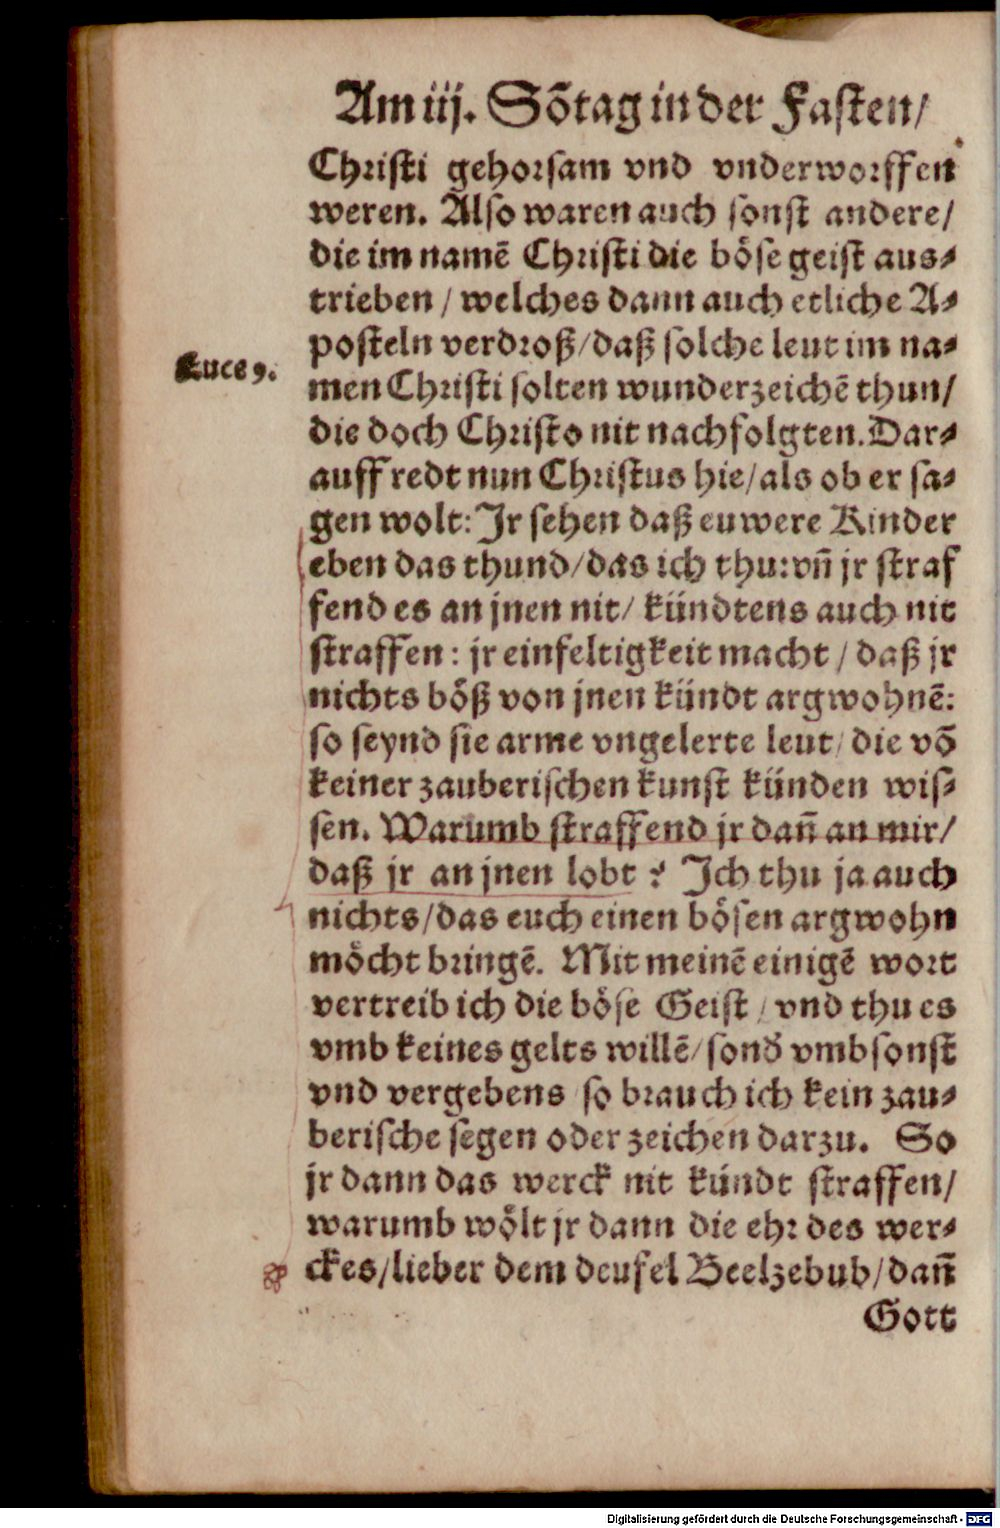 Am iij. Sõtag in der Fasten/
Christi gehorsam vnd vnderworffen
weren. Also waren auch sonst andere/
die im namẽ Christi die böse geist aus⸗
trieben / welches dann auch etliche A⸗
posteln verdroß/daß solche leut im na⸗
Luce 9.
men Christi solten wunderzeichẽ thun/
die doch Christo nit nachfolgten. Dar⸗
auff redt nun Christus hie/als ob er sa⸗
gen wolt: Jr sehen daß euwere Kinder
eben das thund/das ich thu: vñ jr straf
fend es an jnen nit/ kündtens auch nit
straffen: jr einfeltigkeit macht / daß jr
nichts böß von jnen kündt argwohnẽ:
so seynd sie arme vngelerte leut/ die võ
keiner zauberischen kunst künden wis⸗
sen. Warumb straffend jr dañ an mir/
daß jr an jnen lobt? Ich thu ja auch
nichts/das euch einen bösen argwohn
möcht bringẽ. Mit meinẽ einigẽ wort
vertreib ich die böse Geist / vnd thu es
vmb keines gelts willẽ/sond' vmbsonst
vnd vergebens so brauch ich kein zau⸗
berische segen oder zeichen darzu. So
jr dann das werck nit kündt straffen/
warumb wölt jr dann die ehr des wer⸗
ckes/lieber dem deufel Beelzebub/dañ
Gott
Digitalisierung gefördert durch die Deutsche Forschungsgemeinschaft - DFG